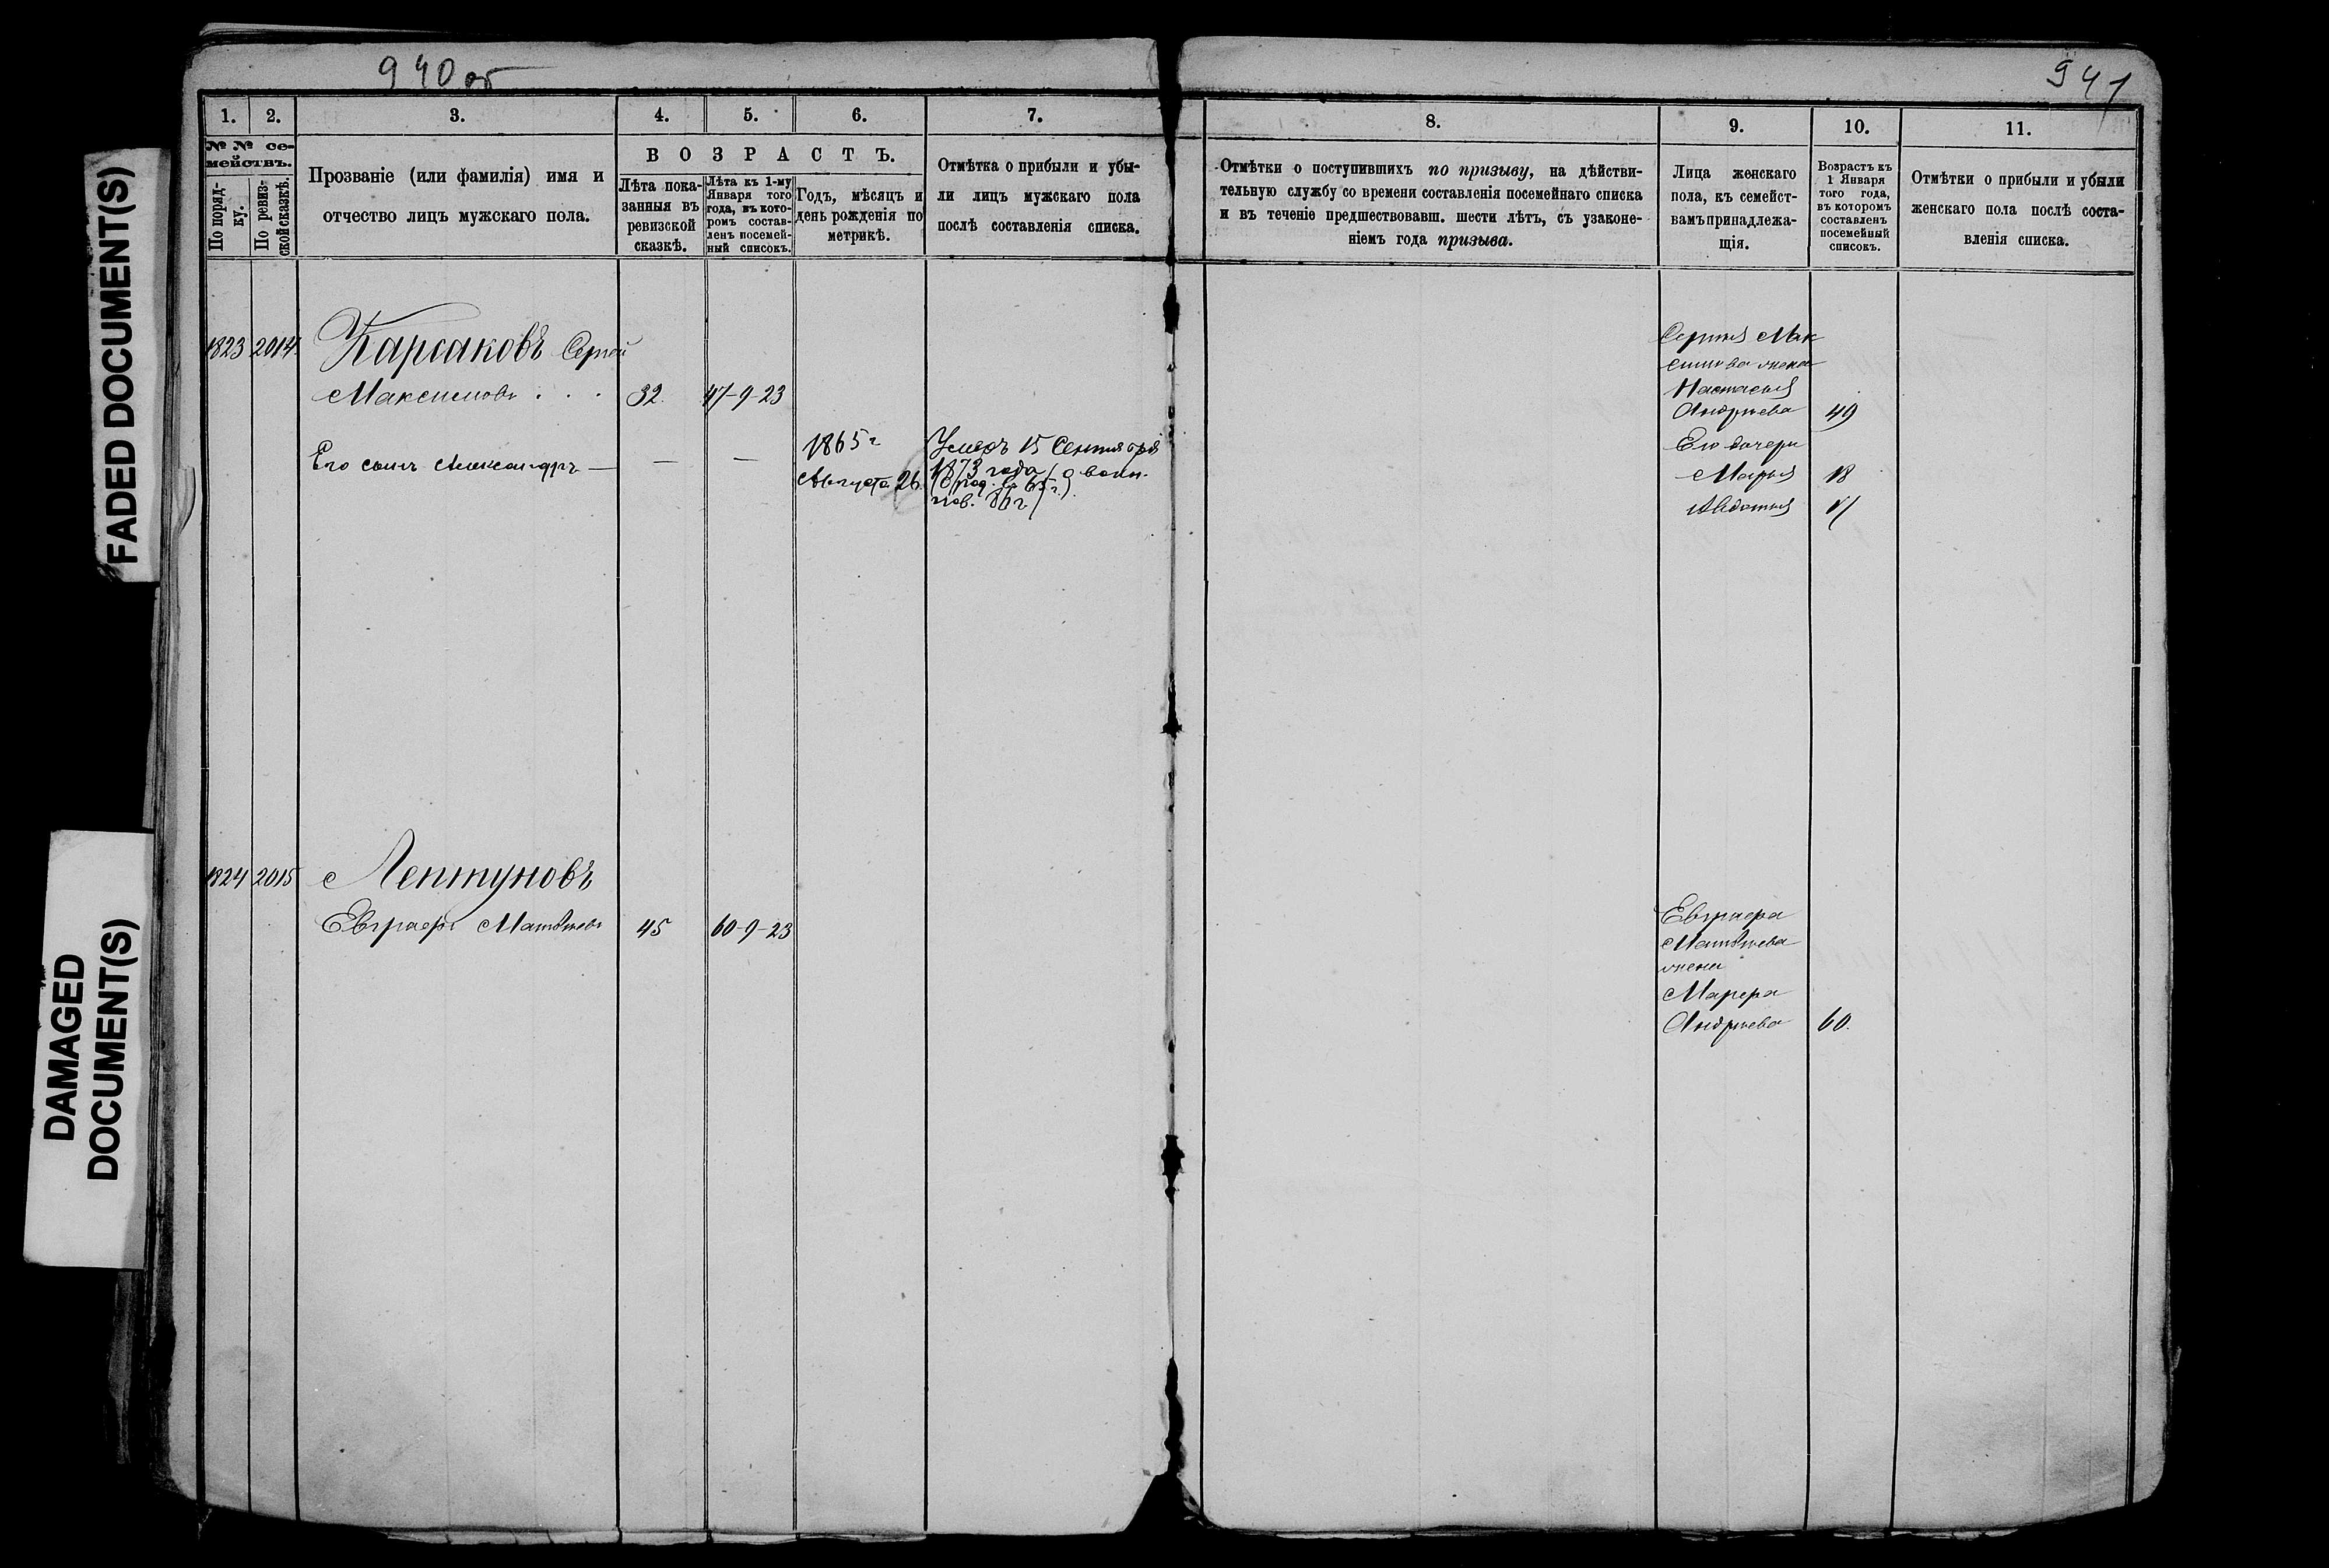 940 об
941
FADED DOCUMENT(S)
DAMAGED
DOCUMENT(S)
1. 2. 3. 4. 5. 6. 7.
№ № се-
мействъ.
По поряд-
ку.
По ревиз-
ской сказкѣ.
Прозваніе (или фамилія) имя и
отчество лицъ мужскаго пола.
ВОЗРАСТЪ.
Лѣта пока-
занныя въ
ревизской
сказкѣ.
Лѣта къ 1-му
Января того
года, въ кото-
ромъ состав-
ленъ посемей-
ный списокъ.
Годъ, мѣсяцъ и
день рожденія по
метрикѣ.
Отмѣтка о прибыли и убы-
ли лицъ мужскаго пола
послѣ составленія списка.
8. 9. 10. 11.
Отмѣтки о поступившихъ по призыву, на дѣйстви-
тельную службу со времени составленія посемейнаго списка
и въ теченіе предшествовавш. шести лѣтъ, съ узаконе-
ніемъ года призыва.
Лица женскаго
пола, къ семейст-
вамъ принадлежа-
щія.
Возрастъ къ
1 Января
того года,
въ которомъ
составленъ
посемейный
списокъ.
Отмѣтки о прибыли и убыли
женскаго пола послѣ соста-
вленія списка.
1823 2014 Карсаковъ Сергей
Максимовъ . . . 32. 47-9-23
Его сынъ Александръ — — —
1865 г
Августа 26.
Умеръ 15 Сентября
1873 года
Сергия Мак
симова жена
Настасья
Андреева 49
Его дочери
Марья 18
Авдотья
1824 2015 Лептуновъ
Евграфъ Матвѣевъ 45 60-9-23
Евграфа
Матвѣева
жена
Марфа
Андреева 60.